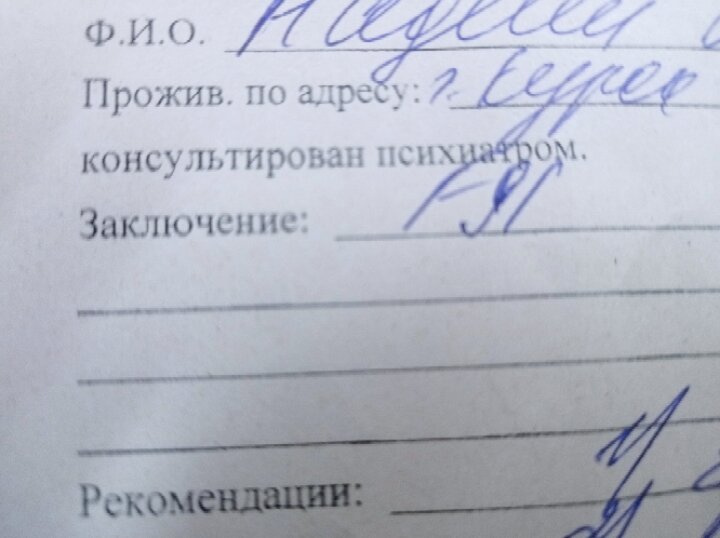 Ф.И.О.
Прожив. по адресу: г. Курск
консультирован психиатром.
Заключение: F91
Рекомендации: